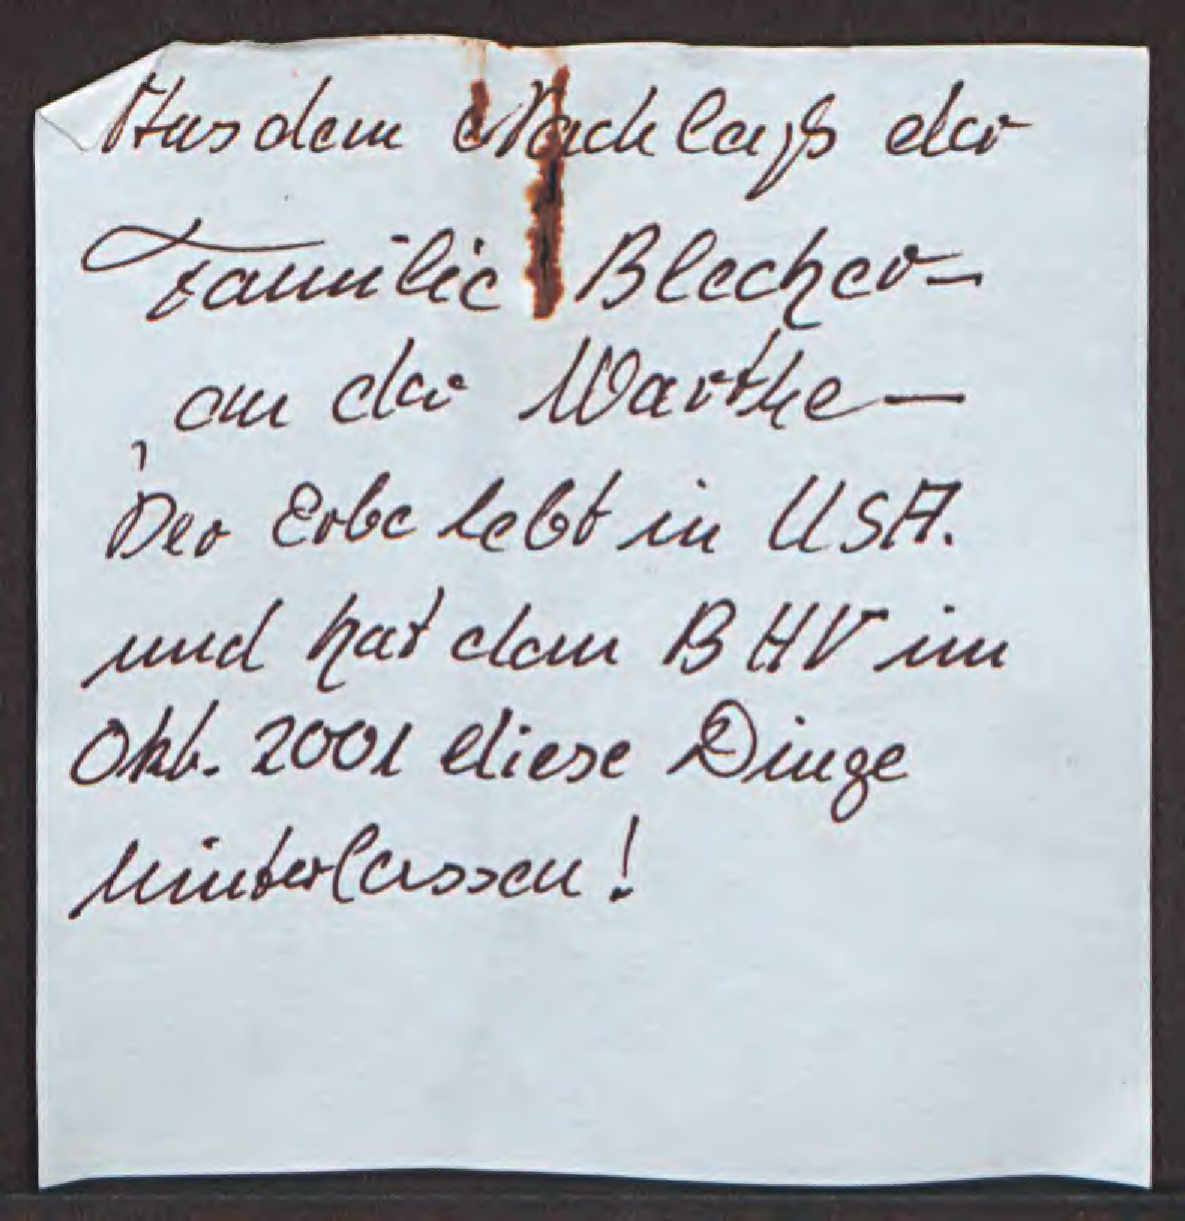 Aus dem Nachlaß der
Familie Blecher -
an der Warthe -
Der Erbe lebt in USA.
und hat dem BHV im
Okt. 2001 diese Dinge
hinterlassen!